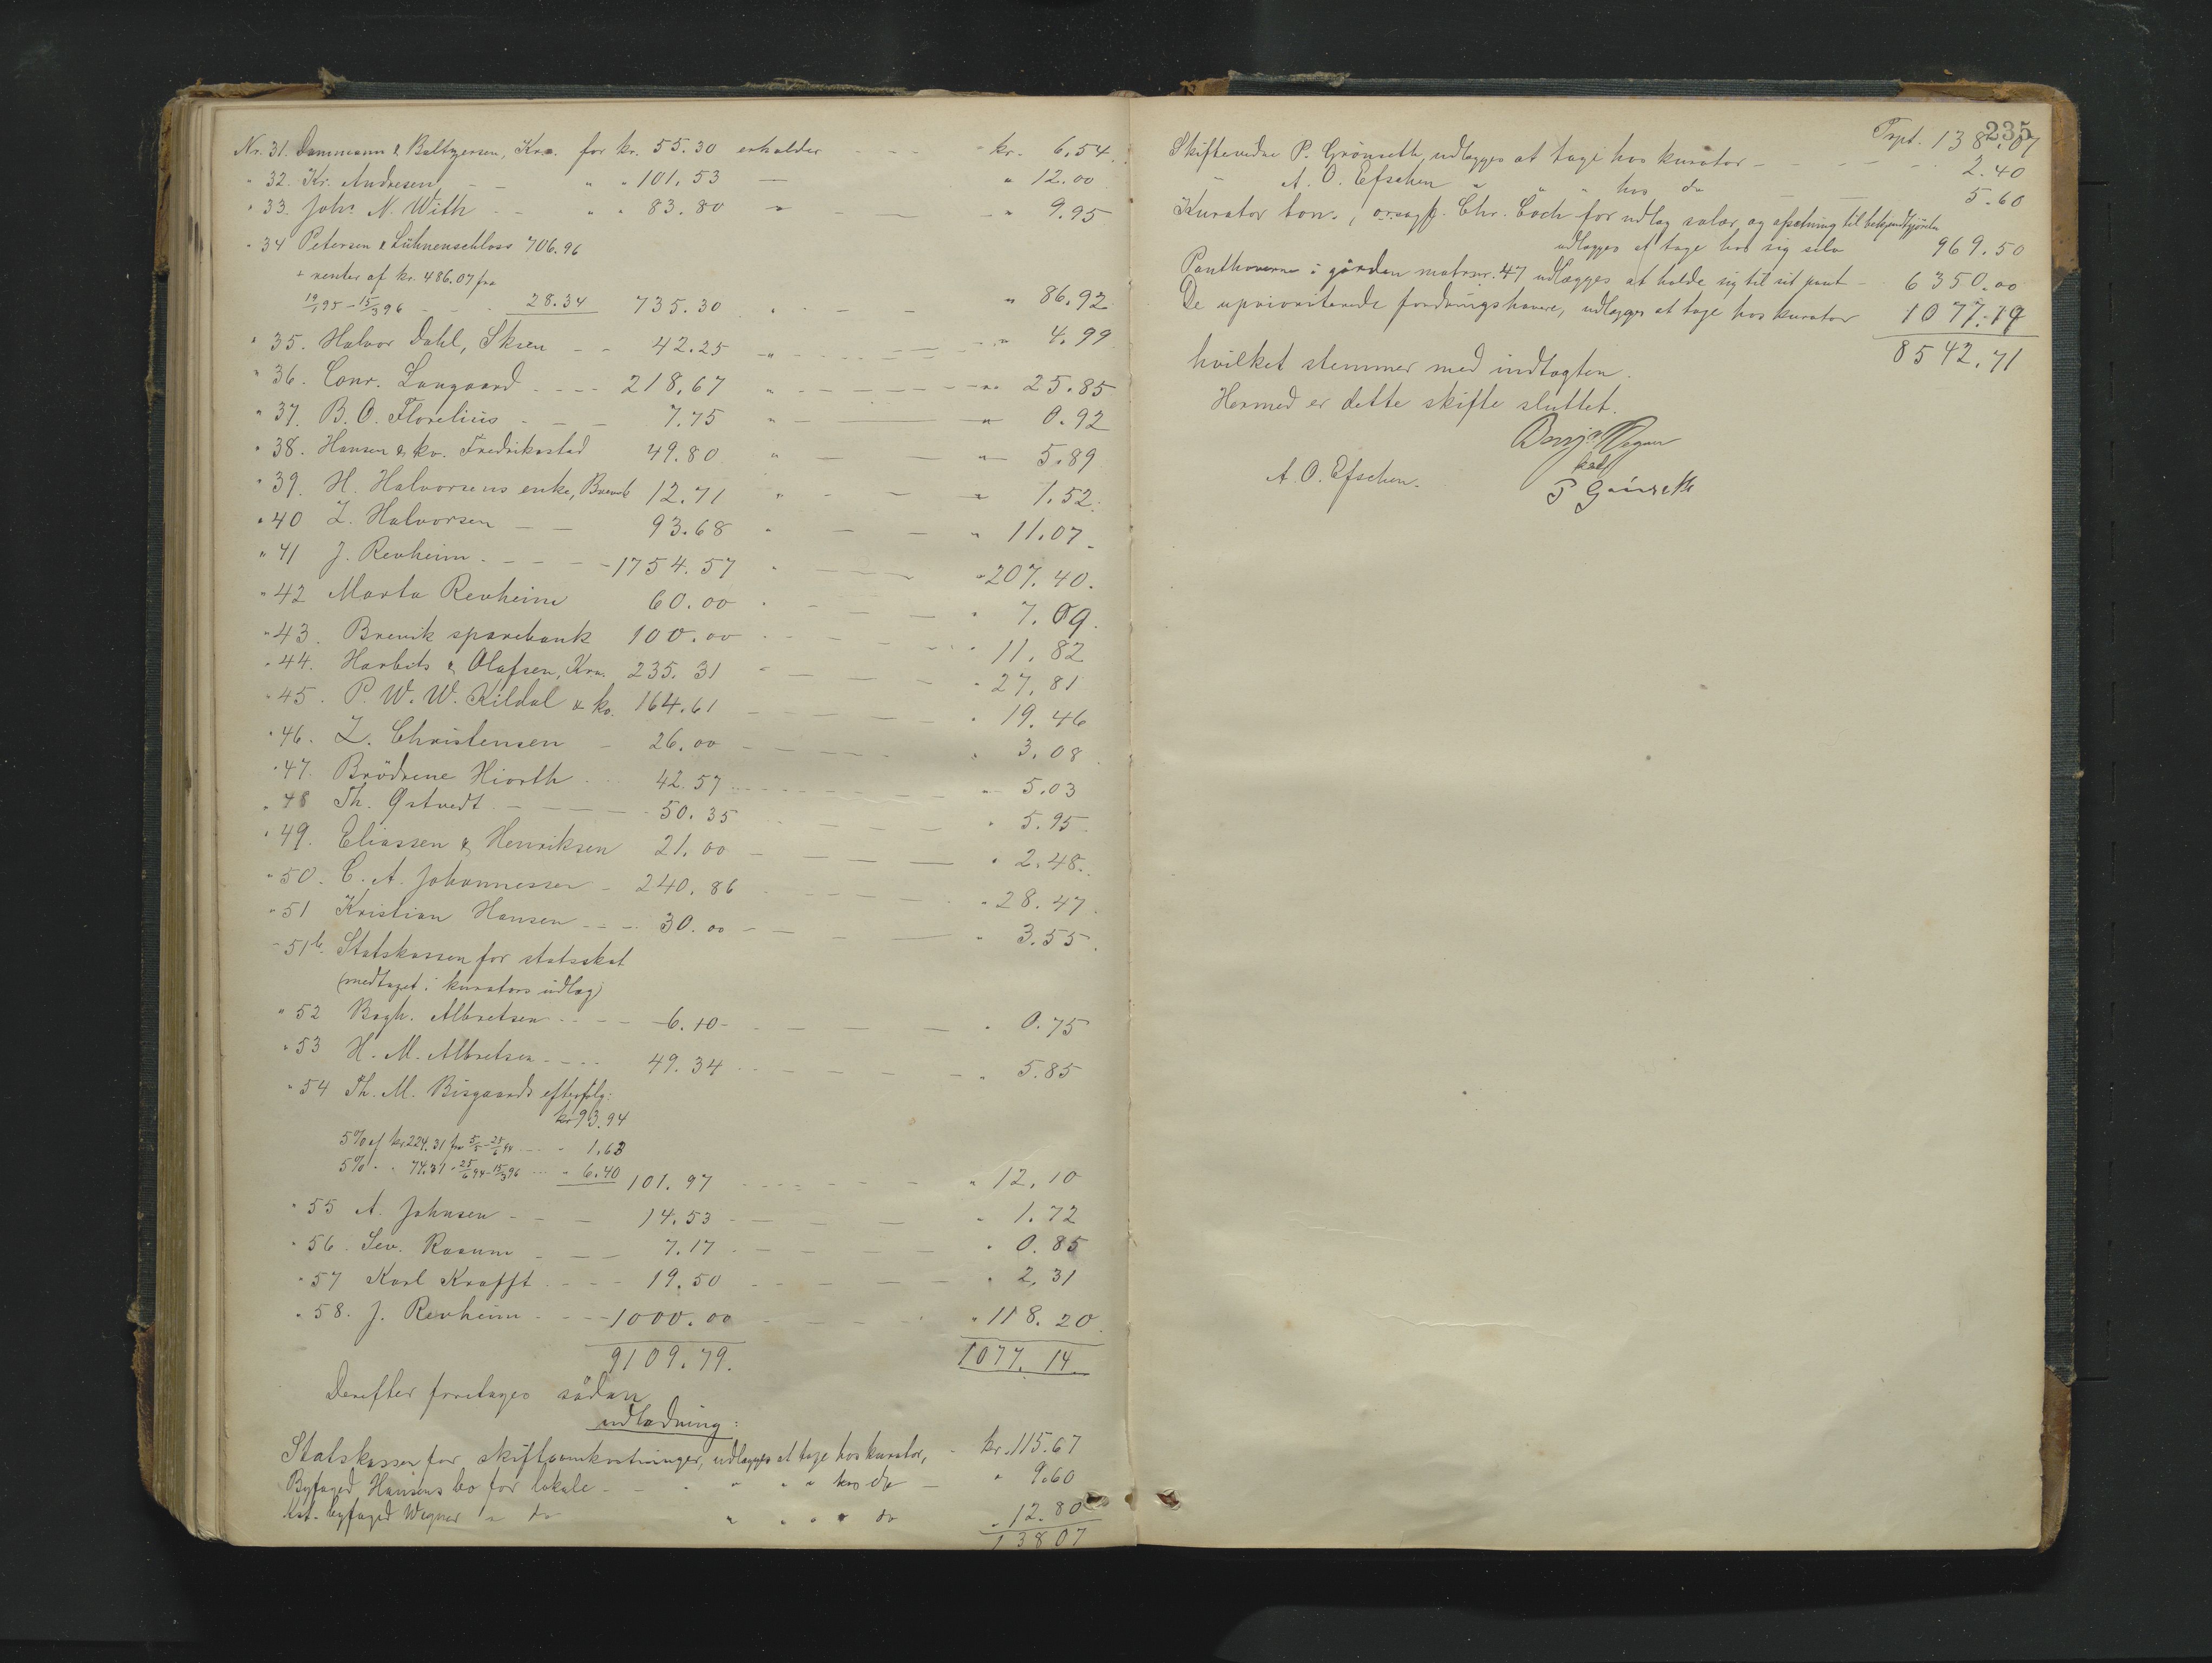 Nr. 31. Dammann & Baltzersen, Kra. for kr. 55.30 erholder - - - kr. 6.54.
" 32. Kr. Andresen - - " " 101.53 — " 12.00
" 33. Johs N. With - - " " 83.80 " - — - " 9.95
" 34 Petersen & Lühnenschloss 706.96
+ renter af kr. 486.07 fra
19/1 95 - 15/3 96 - - - 28.34 735.30 " - - " 86.92
" 35. Halvor Dahl, Sksen - - 42.25 " - - - " 4.99
" 36. Conr. Langaard - - - - 218.67 " - - - " 25.85
" 37. B. O. Florelius - - - 7.75 " - — " 0.92
" 38. Hansen & ko. Fredrikastad 49.80 " — — " 5.89
" 39. H. Halvorsens enke, Brevik 12.71 " - - " 1.52.
" 40 L. Halvorsen - - 93.68 " — - " 11.07
" 41 J. Revheim - - - - 1754.57 " - - " 207.40.
" 42 Marta Revheim 60.00 " - - - " 7.09.
" 43. Brevik sparebank 100.00 - - - " 11.82
" 44. Harbits & Olafsen, Kra. 235.31 " - - - " 27.81
" 45. P. W. W. Kildal & ko. 164.61 - - - - " 19.46
" 46. L. Christensen - 26.00 - - - - " 3.08.
" 47. Brödrene Hiorth - - 42.57 - - - - " 5.03
" 48 Th. Østvedt - - - - 50.35 - - - " 5.95.
" 49. Eliassen & Henriksen 21.00 - - - — " 2.48.
" 50. C. A. Johannessen - 240.86 - - - - " 28.47.
" 51 Kristian Hansen - - - 30.00 - - - — " 3.55.
" 51b. Statskassen for statsskat
(medtaget i kurators udlæg)
" 52 Bagh. Albretsen - - - - 6.10 - - - - " 0.75
" 53 H. M. Albretsen - - - - 49.34 - - - - " 5.85
" 54 Th. M. Bisgaards efterfølg:
kr. 93.94
5% af kr 224.31 fra 5/5 - 25/6 94 - - - " 1.63
5% " " 74.31 " 25/6 94 - 15/3 96 - - - " 6.40 101.97 - - - - " 12.10
" 55 A. Johnsen - - - 14.53 - - - - " 1.72
" 56. Sev. Raaum - - - 7.17 - - - - " 0.85
" 57 Karl Krafft - - - - 19.50 - - - - " 2.31
" 58. J. Revheim - - - 1000.00 - - - " 118.20.
9109.79. 1077.14
Derefter foretages sådan
udlodning:
Statskassen for skifteomkostninger, udlægges at tage hos kurator, - kr. 115.67
Byfoged Hansens bo for lokale - - " " " " hos do - " 9.60
kst. byfoged Wegner " do " " " " do " 12.80
138 07
235
Trspt. 138.07
Skiftevidne P. Grönseth udlægges at tage hos kurator - - - - 2.40
— A. O. Efschen " " " hos do — — 5.60
Kurator bon., orsagf. Chr. Coch for udlæg salær og afsætning til bekjendtgjörelse
udlægges at tage hos sig selv 969.50
Panthaverne i gården matrnr. 47 udlægges at holde sig til sit pant - 6350.00
De uprioriterede fordringshavere, udlægges at tage hos kurator 1077.14
8542.71
hvilket stemmer med indtægten.
Hermed er dette skifte sluttet.
Benj. Wegner
kst
A. O. Efschen. P Grönseth